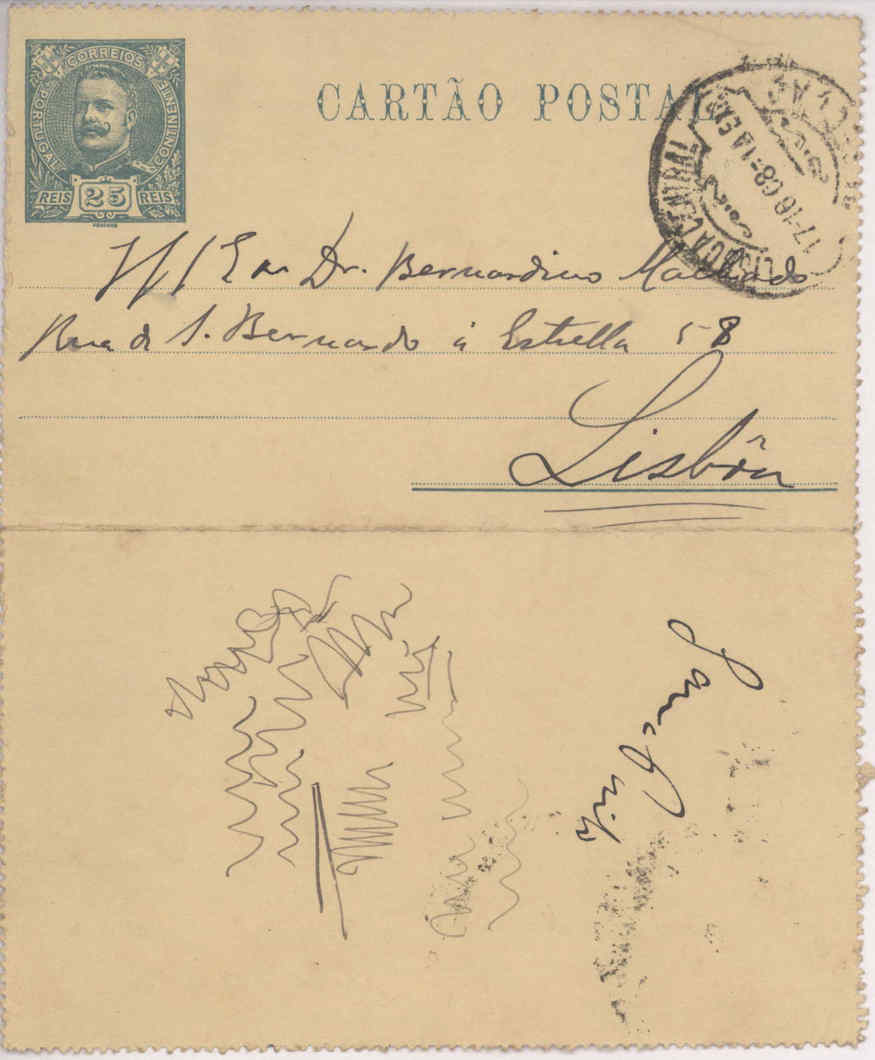 CORREIOS
PORTUGAL
CONTINENTE
REIS 25 REIS
CARTÃO POSTAL
LISBOA CENTRAL
Dr. Bernardino Machado
Rua de S. Bernardo á Estrella 58
Lisbôa